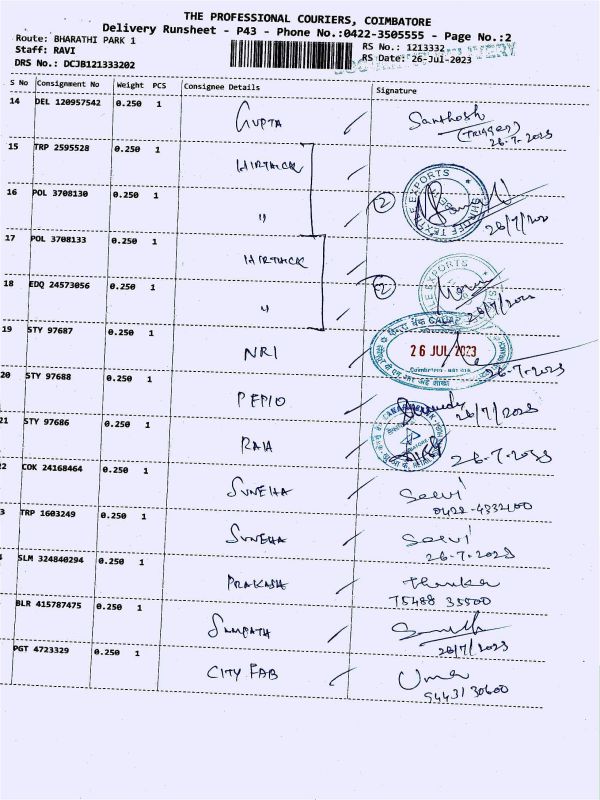 THE PROFESSIONAL COURIERS, COIMBATORE
Delivery Runsheet - P43 - Phone No.:0422-3505555 - Page No.:2
Route: BHARATHI PARK 1
Staff: RAVI
DRS No.: DCJB121333202
RS No.: 1213332
RS Date: 26-Jul-2023
S No Consignment No Weight PCS Consignee Details Signature
14 DEL 120957542 0.250 1 GUPTA Santhosh
(Trigger)
26.7.2023
15 TRP 2595528 0.250 1 HIRTHICK
16 POL 3708130 0.250 1 " 2 26/7/2023
17 POL 3708133 0.250 1 HIRTHICK
18 EDQ 24573056 0.250 1 " 2 26/7/2023
19 STY 97687 0.250 1 NRI 26 JUL 2023
26.7.2023
20 STY 97688 0.250 1 PEPIO 26/7/2023
21 STY 97686 0.250 1 RAJA 26.7.2023
2 COK 24168464 0.250 1 SUNEHA Selvi
0422-4332100
3 TRP 1603249 0.250 1 SUNEHA Selvi
26.7.2023
SLM 324840294 0.250 1 PRAKASH
75488 35500
BLR 415787475 0.250 1 SAMPATH
26/7/2023
PGT 4723329 0.250 1 CITY FAB Uma
94431 30600